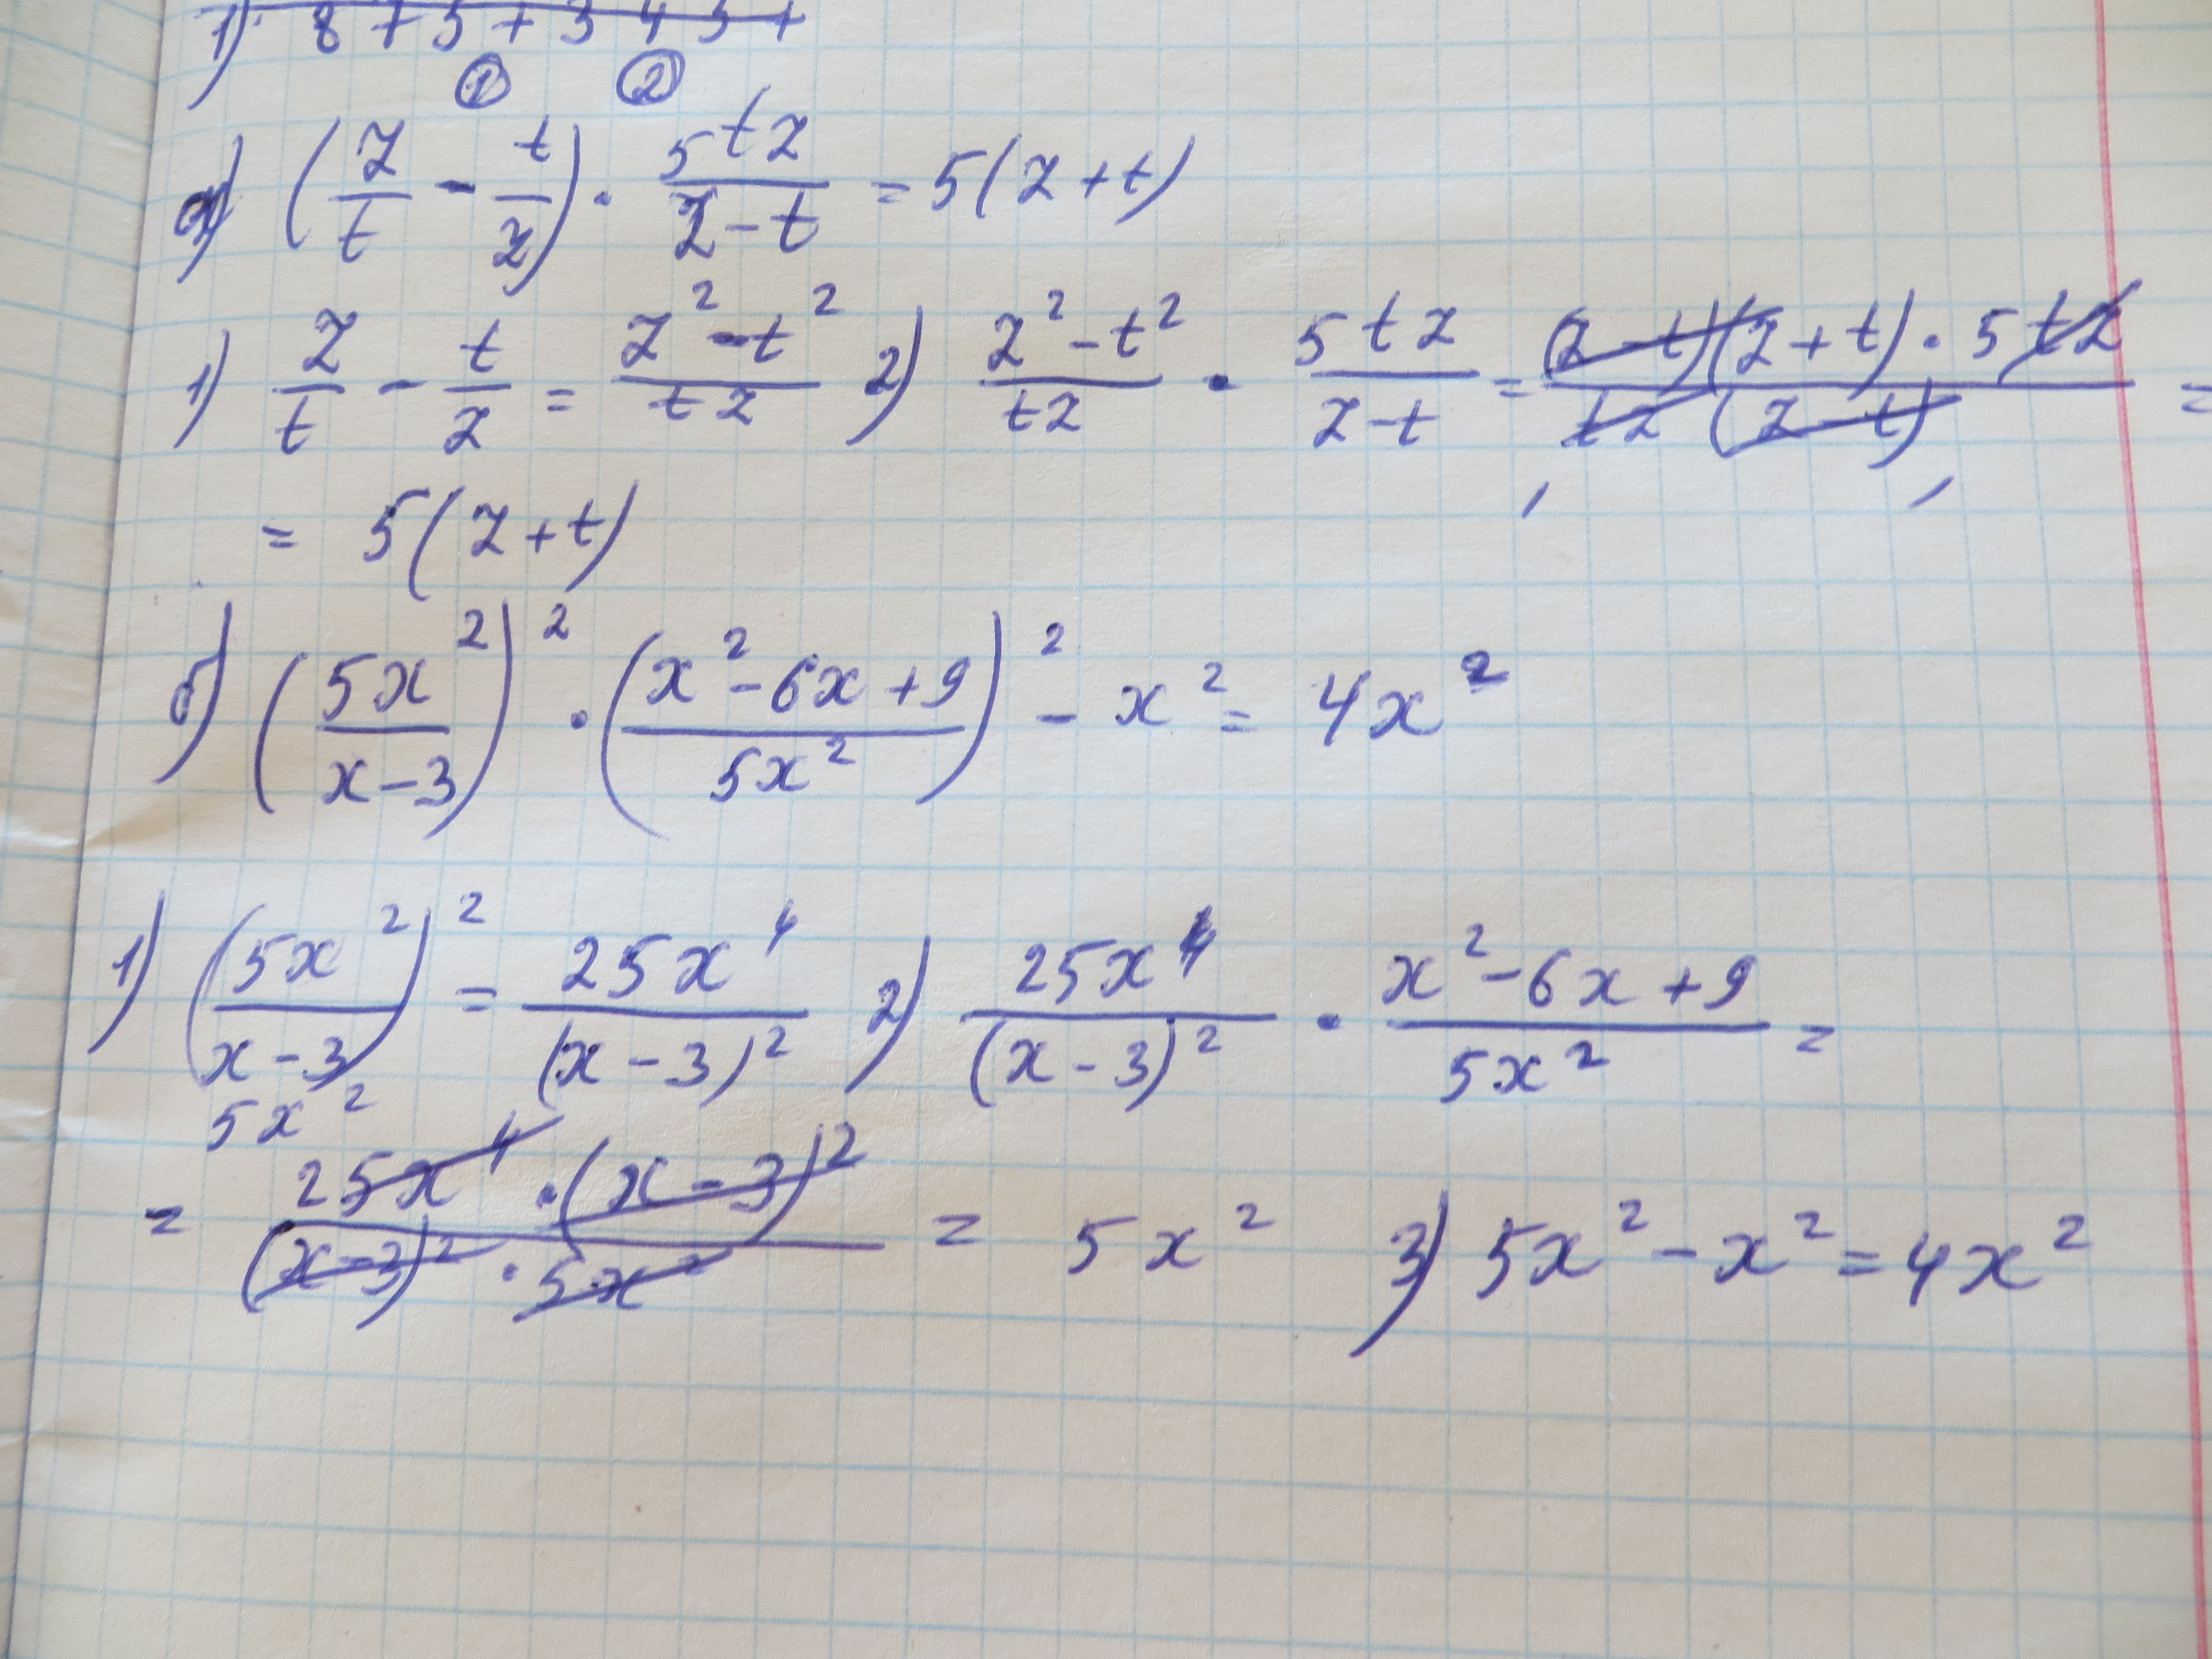 ① ②
а) (z/t - t/z) · 5tz/(z-t) = 5(z+t)
1) z/t - t/z = (z²-t²)/tz 2) (z²-t²)/tz · 5tz/(z-t) = (z-t)(z+t)·5tz/(tz(z-t)) =
= 5(z+t)
б) (5x²/(x-3))² · ((x²-6x+9)/5x²)² - x² = 4x²
1) (5x²/(x-3))² = 25x⁴/(x-3)² 2) 25x⁴/(x-3)² · (x²-6x+9)/5x² =
5x²
= 25x⁴·(x-3)²/((x-3)²·5x²) = 5x² 3) 5x²-x²=4x²